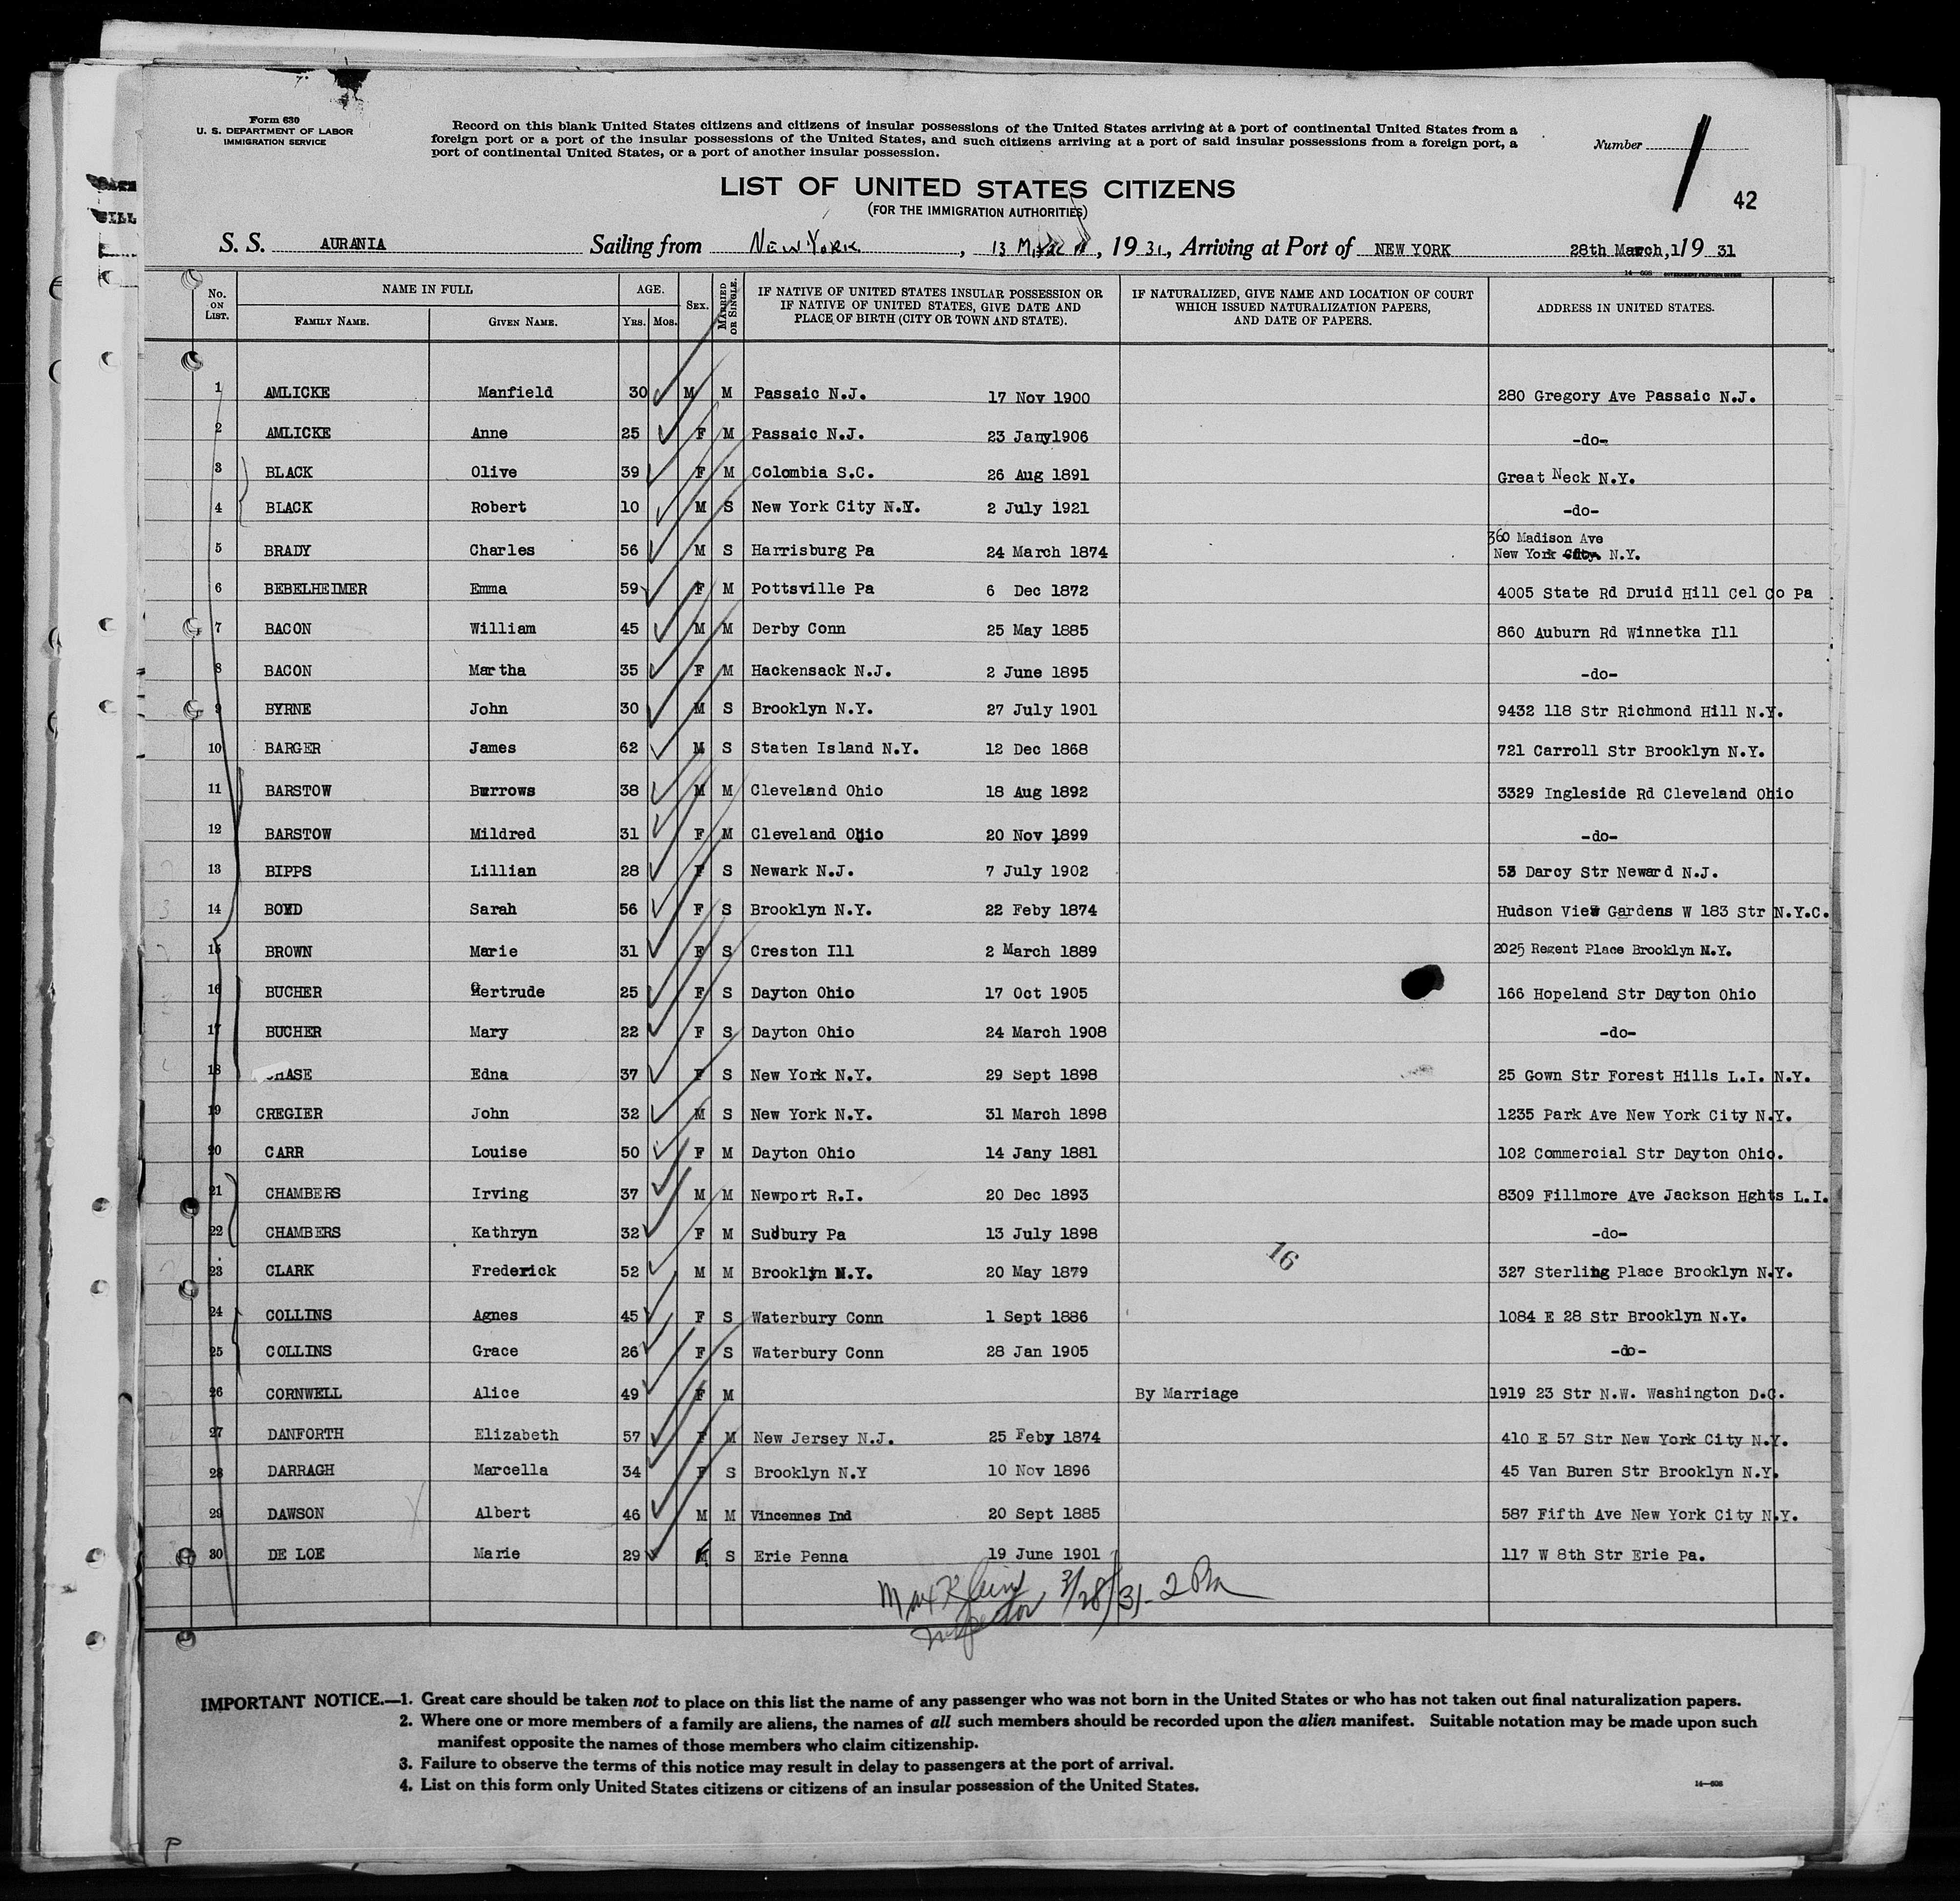 Form 630
U. S. DEPARTMENT OF LABOR
IMMIGRATION SERVICE
Record on this blank United States citizens and citizens of insular possessions of the United States arriving at a port of continental United States from a
foreign port or a port of the insular possessions of the United States, and such citizens arriving at a port of said insular possessions from a foreign port, a
port of continental United States, or a port of another insular possession.
Number 1
42
LIST OF UNITED STATES CITIZENS
(FOR THE IMMIGRATION AUTHORITIES)
S. S. AURANIA Sailing from NEW YORK, 13 March, 1931, Arriving at Port of NEW YORK 28th March, 1931
No. ON LIST. NAME IN FULL FAMILY NAME. GIVEN NAME. AGE. YRS. MOS. SEX. MARRIED OR SINGLE. IF NATIVE OF UNITED STATES INSULAR POSSESSION OR IF NATIVE OF UNITED STATES, GIVE DATE AND PLACE OF BIRTH (CITY OR TOWN AND STATE). IF NATURALIZED, GIVE NAME AND LOCATION OF COURT WHICH ISSUED NATURALIZATION PAPERS, AND DATE OF PAPERS. ADDRESS IN UNITED STATES.
1 AMLICKE Manfield 30 M M Passaic N.J. 17 Nov 1900 280 Gregory Ave Passaic N.J.
2 AMLICKE Anne 25 F M Passaic N.J. 23 Jany1906 -do-
3 BLACK Olive 39 F M Colombia S.C. 26 Aug 1891 Great Neck N.Y.
4 BLACK Robert 10 M S New York City N.Y. 2 July 1921 -do-
5 BRADY Charles 56 M S Harrisburg Pa 24 March 1874 360 Madison Ave New York City N.Y.
6 BEBELHEIMER Emma 59 F M Pottsville Pa 6 Dec 1872 4005 State Rd Druid Hill Cel Co Pa
7 BACON William 45 M M Derby Conn 25 May 1885 860 Auburn Rd Winnetka Ill
8 BACON Martha 35 F M Hackensack N.J. 2 June 1895 -do-
9 BYRNE John 30 M S Brooklyn N.Y. 27 July 1901 9432 118 Str Richmond Hill N.Y.
10 BARGER James 62 M S Staten Island N.Y. 12 Dec 1868 721 Carroll Str Brooklyn N.Y.
11 BARSTOW Burrows 38 M M Cleveland Ohio 18 Aug 1892 3329 Ingleside Rd Cleveland Ohio
12 BARSTOW Mildred 31 F M Cleveland Ohio 20 Nov 1899 -do-
13 BIPPS Lillian 28 F S Newark N.J. 7 July 1902 53 Darcy Str Neward N.J.
14 BOYD Sarah 56 F S Brooklyn N.Y. 22 Feby 1874 Hudson View Gardens W 183 Str N.Y.C.
15 BROWN Marie 31 F S Creston Ill 2 March 1889 2025 Regent Place Brooklyn N.Y.
16 BUCHER Gertrude 25 F S Dayton Ohio 17 Oct 1905 166 Hopeland Str Dayton Ohio
17 BUCHER Mary 22 F S Dayton Ohio 24 March 1908 -do-
18 CHASE Edna 37 F S New York N.Y. 29 Sept 1898 25 Gown Str Forest Hills L.I. N.Y.
19 CREGIER John 32 M S New York N.Y. 31 March 1898 1235 Park Ave New York City N.Y.
20 CARR Louise 50 F M Dayton Ohio 14 Jany 1881 102 Commercial Str Dayton Ohio.
21 CHAMBERS Irving 37 M M Newport R.I. 20 Dec 1893 8309 Fillmore Ave Jackson Hghts L.I.
22 CHAMBERS Kathryn 32 F M Sudbury Pa 13 July 1898 -do-
23 CLARK Frederick 52 M M Brooklyn N.Y. 20 May 1879 327 Sterling Place Brooklyn N.Y.
16
24 COLLINS Agnes 45 F S Waterbury Conn 1 Sept 1886 1084 E 28 Str Brooklyn N.Y.
25 COLLINS Grace 26 F S Waterbury Conn 28 Jan 1905 -do-
26 CORNWELL Alice 49 F M By Marriage 1919 23 Str N.W. Washington D.C.
27 DANFORTH Elizabeth 57 F M New Jersey N.J. 25 Feby 1874 410 E 57 Str New York City N.Y.
28 DARRAGH Marcella 34 F S Brooklyn N.Y 10 Nov 1896 45 Van Buren Str Brooklyn N.Y.
29 DAWSON Albert 46 M M Vincennes Ind 20 Sept 1885 587 Fifth Ave New York City N.Y.
30 DE LOE Marie 29 F S Erie Penna 19 June 1901 117 W 8th Str Erie Pa.
Max Klein 3/28/31 - 2 Pm
Inspector
IMPORTANT NOTICE.—1. Great care should be taken not to place on this list the name of any passenger who was not born in the United States or who has not taken out final naturalization papers.
2. Where one or more members of a family are aliens, the names of all such members should be recorded upon the alien manifest. Suitable notation may be made upon such
manifest opposite the names of those members who claim citizenship.
3. Failure to observe the terms of this notice may result in delay to passengers at the port of arrival.
4. List on this form only United States citizens or citizens of an insular possession of the United States.
14—608
P